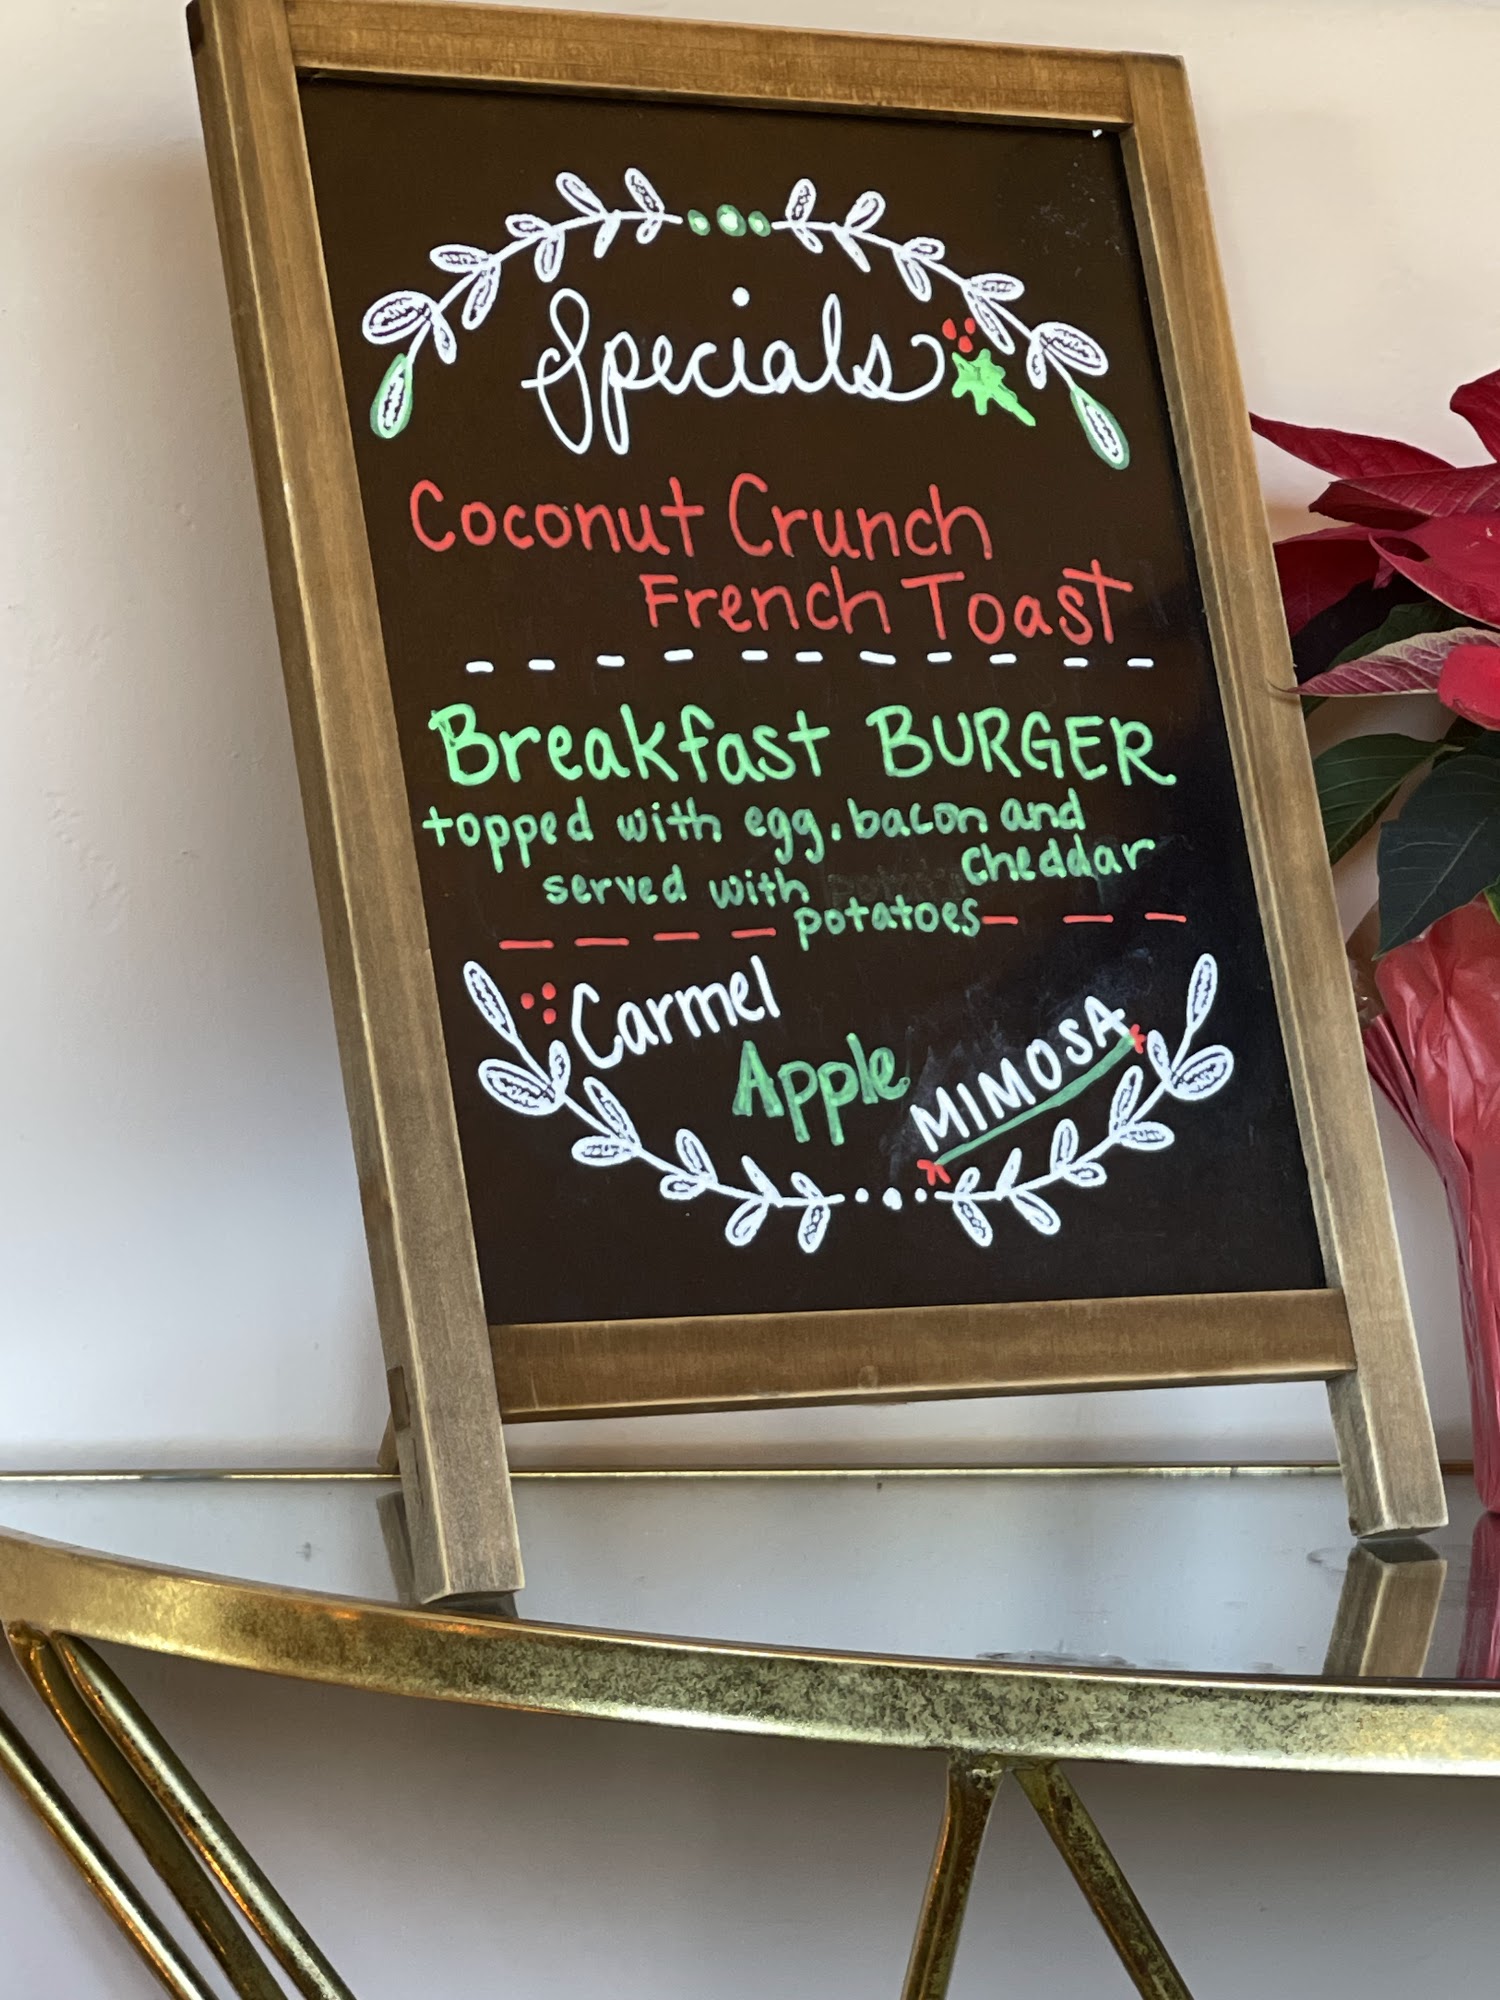 Specials
Coconut Crunch
French Toast
Breakfast BURGER
topped with egg, bacon and
cheddar
served with
potatoes
Carmel
Apple
MIMOSA